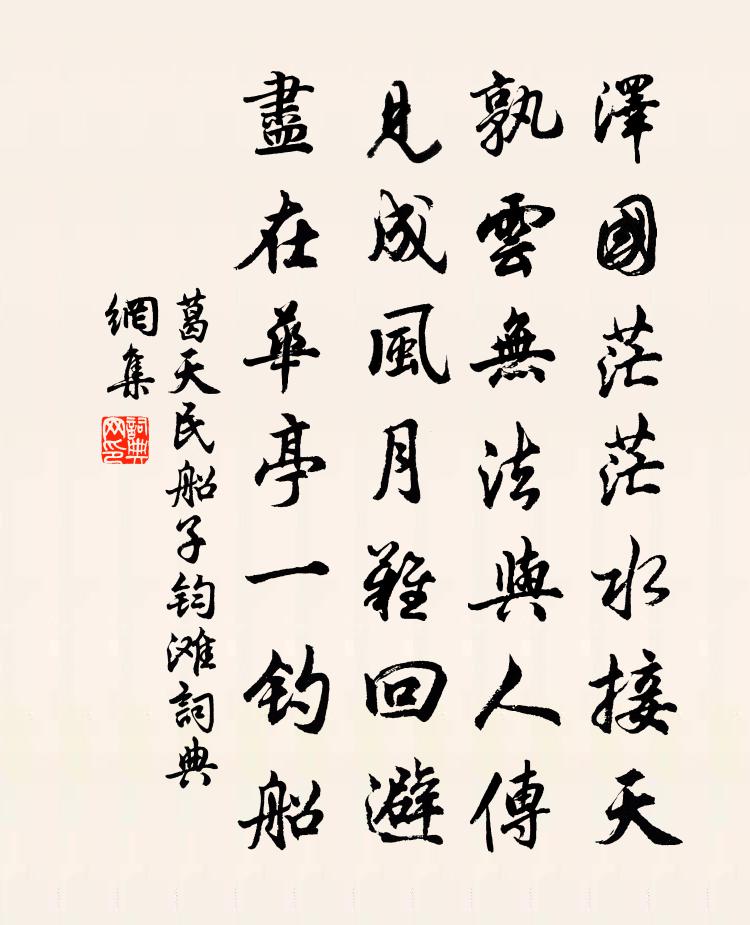 澤國茫茫水接天
孰雲無法與人傳
見成風月難回避
盡在華亭一釣船
葛天民船子钧滩詞典
網集
詞典
网印